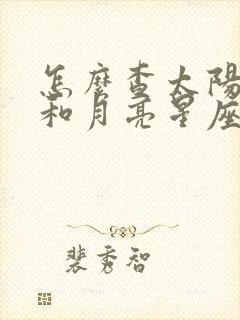 怎麼查太陽
和月亮星座
裴秀智